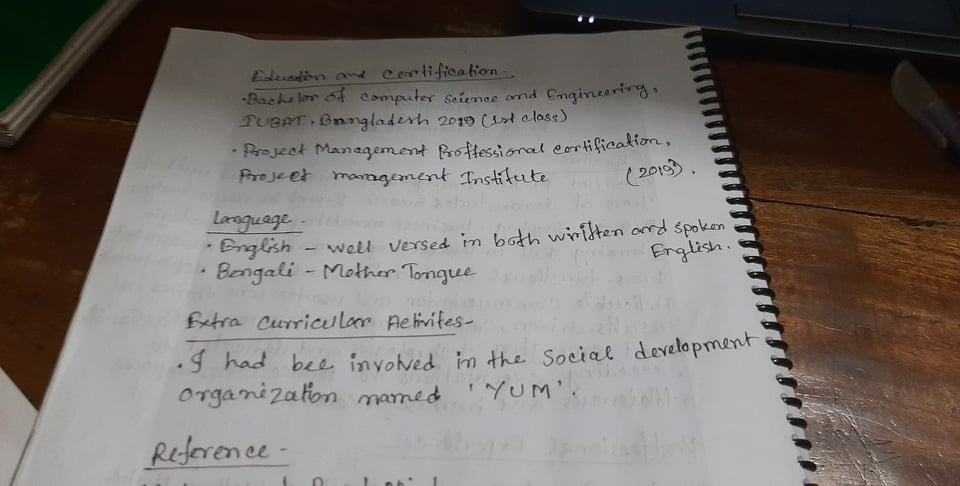 Education and Certification -
• Bachelor of computer science and Engineering,
IUBAT, Bangladesh 2019 (1st class)
• Project Management Proffessional certification,
Project management Institute (2019).
Language -
• English - well versed in both written and spoken
English.
• Bengali - Mother Tongue
Extra Curricular Activites -
• I had bee involved in the social development
organization named 'YUM'.
Reference -